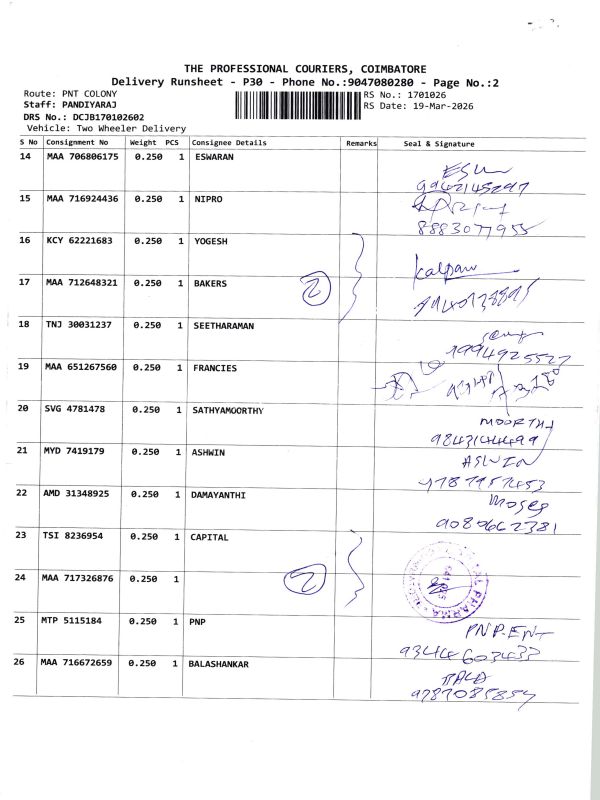 THE PROFESSIONAL COURIERS, COIMBATORE
Delivery Runsheet - P30 - Phone No.:9047080280 - Page No.:2
Route: PNT COLONY
RS No.: 1701026
Staff: PANDIYARAJ
RS Date: 19-Mar-2026
DRS No.: DCJB170102602
Vehicle: Two Wheeler Delivery
S No Consignment No Weight PCS Consignee Details Remarks Seal & Signature
14 MAA 706806175 0.250 1 ESWARAN
9942145297
15 MAA 716924436 0.250 1 NIPRO
8883077955
16 KCY 62221683 0.250 1 YOGESH
Kalpana
17 MAA 712648321 0.250 1 BAKERS 2
18 TNJ 30031237 0.250 1 SEETHARAMAN
9994925527
19 MAA 651267560 0.250 1 FRANCIES
20 SVG 4781478 0.250 1 SATHYAMOORTHY MOORTHY
9843144499
21 MYD 7419179 0.250 1 ASHWIN ASWIN
9787957453
22 AMD 31348925 0.250 1 DAMAYANTHI Moses
9080662381
23 TSI 8236954 0.250 1 CAPITAL
24 MAA 717326876 0.250 1 2
25 MTP 5115184 0.250 1 PNP PNP.ENT
9344603433
26 MAA 716672659 0.250 1 BALASHANKAR BALA
9787085854